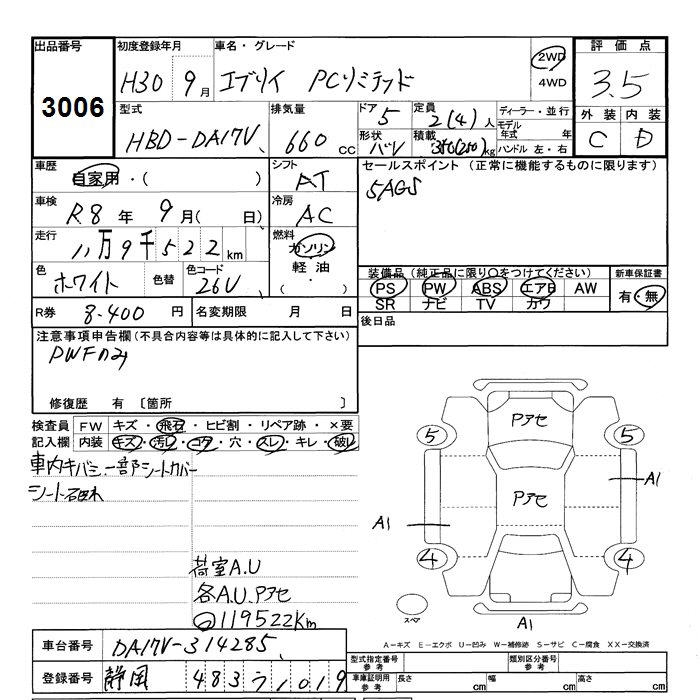 出品番号 3006
初度登録年月 H30 9月
車名・グレード エブリイ PCリミテッド
2WD
4WD
評価点 3.5
外装 内装
C D
型式 HBD-DA17V
排気量 660 cc
ドア 5
形状 バン
定員 2(4)人
積載 350(250)kg
ディーラー・並行
モデル年式 年
ハンドル 左・右
車歴 自家用・( )
シフト AT
車検 R8年 9月( 日)
冷房 AC
走行 11万9千522km
燃料 ガソリン
軽油・
( )
色 ホワイト 色替 色コード 26U
R券 8.400円 名変期限 月 日
セールスポイント(正常に機能するものに限ります)
5AGS
装備品(純正品に限り○をつけてください)
PS PW ABS エアB AW
SR ナビ TV カワ
新車保証書
有・無
後日品
注意事項申告欄(不具合内容等は具体的に記入して下さい)
PWFのみ
修復歴 有 〔箇所 〕
検査員記入欄
FW キズ・飛石・ヒビ割・リペア跡・×要
内装 キズ・汚レ・コゲ・穴・スレ・キレ・破レ
車内キバミ、一部シートカバー
シート破れ
荷室A.U
各A.U.Pアセ
119522Km
Pアセ
Pアセ
5
5
4
4
A1
A1
A1
スペア
A-キズ E-エクボ U-凹み W-補修跡 S-サビ C-腐食 XX-交換済
車台番号 DA17V-314285
登録番号 静岡 483 う 1019
型式指定番号 参考
類別区分番号 参考
車庫証明用 参考 長さ cm 幅 cm 高さ cm